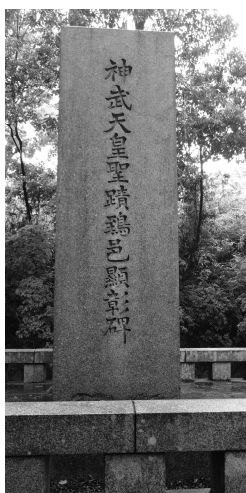 神武天皇聖蹟鵄邑顯彰碑